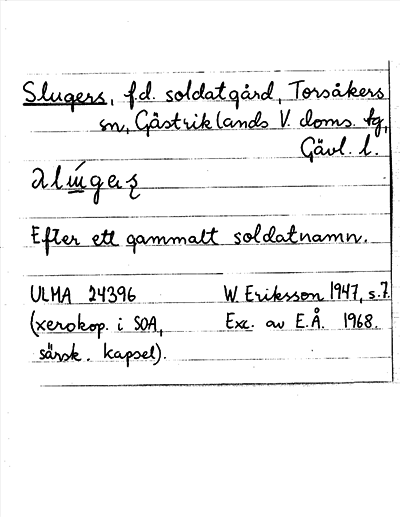 Slugers, f.d. soldatgård, Torsåkers
sn, Gästriklands V. doms. tg,
Gävl. l.
Efter ett gammalt soldatnamn.
ULMA 24396 W. Eriksson 1947, s. 7.
(xerokop. i SOA, Exc. av E.Å. 1968.
särsk. kapsel).